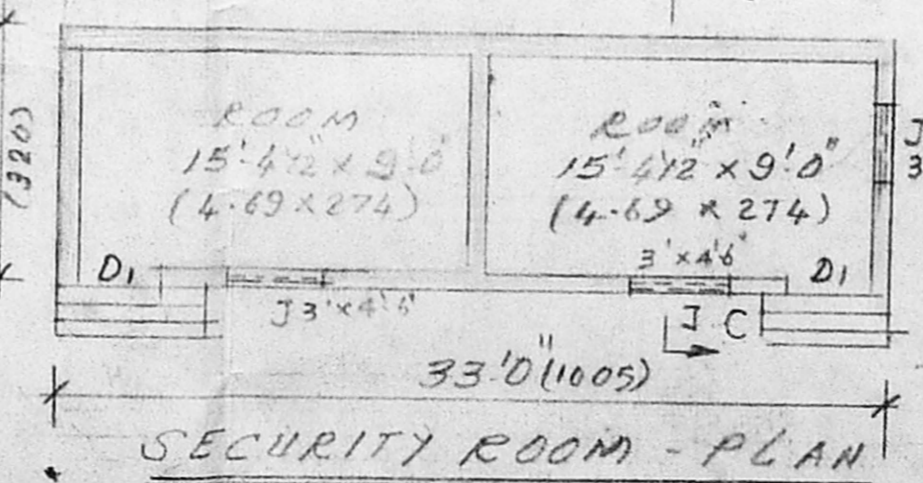 (320)
ROOM
15'-4½" x 9'-0"
(4.69 x 274)
ROOM
15'-4½" x 9'-0"
(4.69 x 274)
J
3
D1
J 3'x4'6"
3'x4'6"
D1
J
C
33'0"(1005)
SECURITY ROOM - PLAN